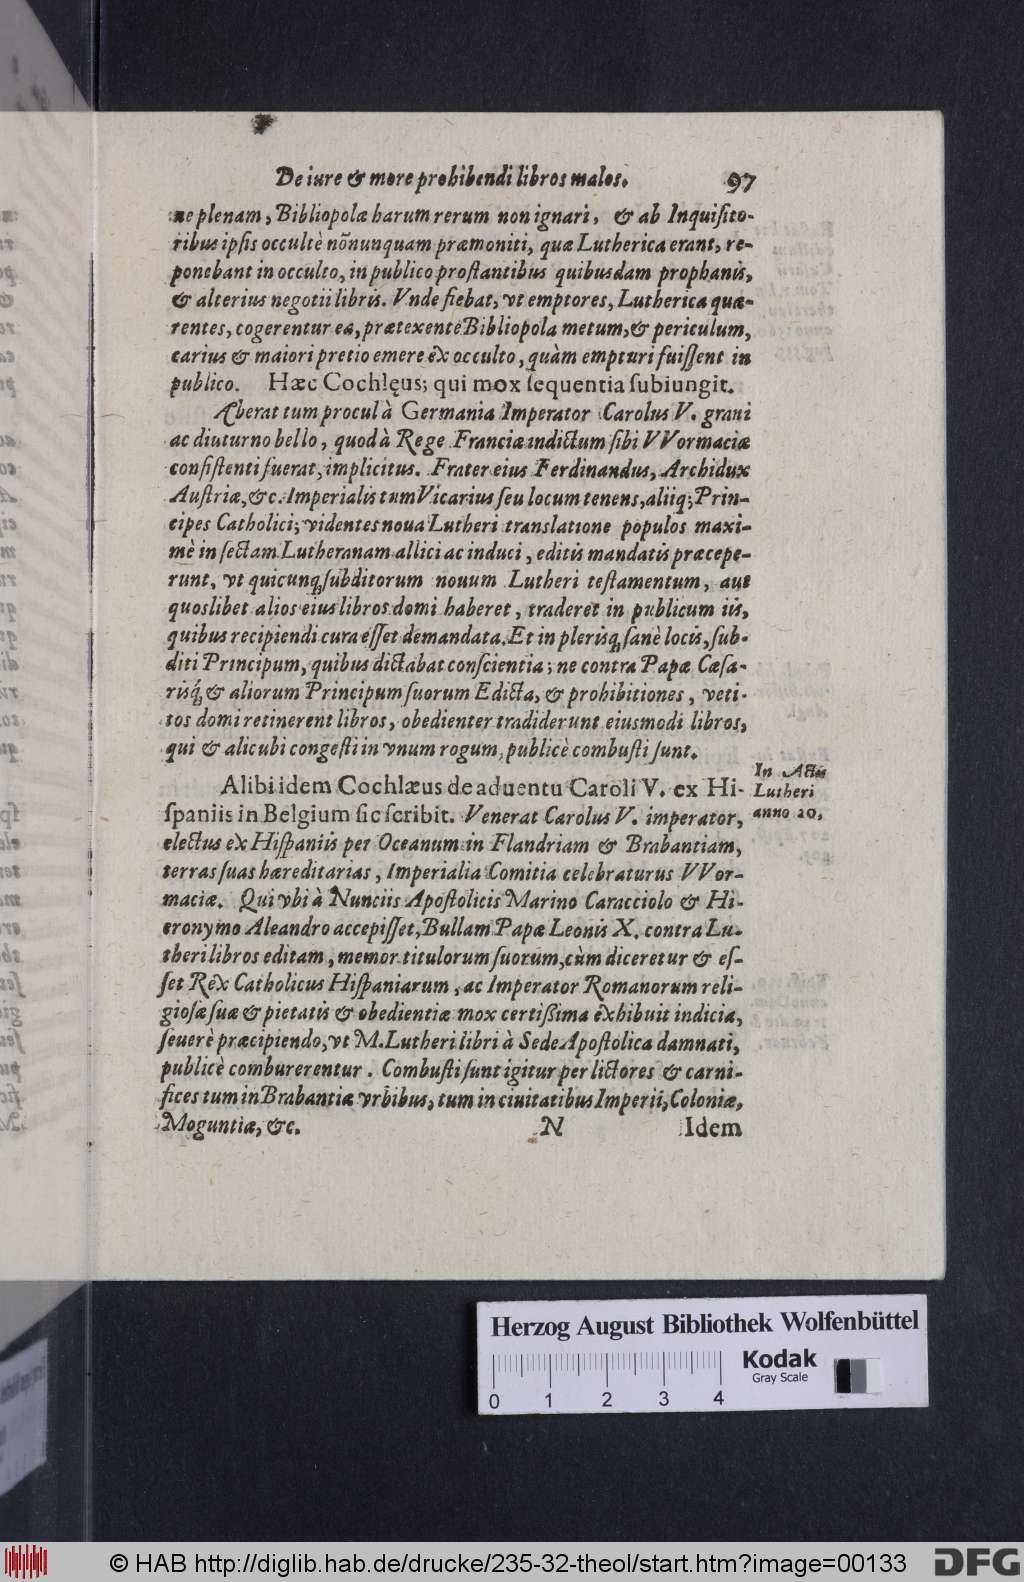 De iure & more prohibendi libros malos. 97
ne plenam, Bibliopolæ harum rerum non ignari, & ab Inquiſito-
ribus ipſis occultè nõnunquam præmoniti, quæ Lutherica erant, re-
ponebant in occulto, in publico proſtantibus quibuſdam prophanis,
& alterius negotii libris. Vnde fiebat, vt emptores, Lutherica quæ-
rentes, cogerentur ea, prætexente Bibliopola metum, & periculum,
carius & maiori pretio emere ex occulto, quàm empturi fuiſſent in
publico. Hæc Cochlęus; qui mox ſequentia ſubiungit.
Aberat tum procul à Germania Imperator Carolus V. graui
ac diuturno bello, quod à Rege Franciæ indictum ſibi VVormaciæ
conſiſtenti fuerat, implicitus. Frater eius Ferdinandus, Archidux
Auſtriæ, &c. Imperialis tum Vicarius ſeu locum tenens, aliiq; Prin-
cipes Catholici; videntes noua Lutheri translatione populos maxi-
mè in ſectam Lutheranam allici ac induci, editis mandatis præcepe-
runt, vt quicunq; ſubditorum nouum Lutheri teſtamentum, aut
quoslibet alios eius libros domi haberet, traderet in publicum iis,
quibus recipiendi cura eſſet demandata. Et in plerisq; ſanè locis, ſub-
diti Principum, quibus dictabat conſcientia; ne contra Papæ Cæſa-
risq́; & aliorum Principum ſuorum Edicta, & prohibitiones, veti-
tos domi retinerent libros, obedienter tradiderunt eiusmodi libros,
qui & alicubi congeſti in vnum rogum, publicè combuſti ſunt.
Alibi idem Cochlæus de aduentu Caroli V. ex Hi-
ſpaniis in Belgium ſic ſcribit. Venerat Carolus V. imperator,
electus ex Hiſpaniis per Oceanum in Flandriam & Brabantiam,
terras ſuas hæreditarias, Imperialia Comitia celebraturus VVor-
maciæ. Qui vbi à Nunciis Apoſtolicis Marino Caracciolo & Hi-
eronymo Aleandro accepiſſet, Bullam Papæ Leonis X. contra Lu-
theri libros editam, memor titulorum ſuorum, cùm diceretur & eſ-
ſet Rex Catholicus Hiſpaniarum, ac Imperator Romanorum reli-
gioſæ ſuæ & pietatis & obedientiæ mox certißima exhibuit indicia,
ſeuerè præcipiendo, vt M. Lutheri libri à Sede Apoſtolica damnati,
publicè comburerentur. Combuſti ſunt igitur per lictores & carni-
fices tum in Brabantiæ vrbibus, tum in ciuitatibus Imperii, Coloniæ,
Moguntiæ, &c. N Idem
In Actis
Lutheri
anno 20,
Herzog August Bibliothek Wolfenbüttel
Kodak
Gray Scale
0 1 2 3 4
© HAB http://diglib.hab.de/drucke/235-32-theol/start.htm?image=00133
DFG